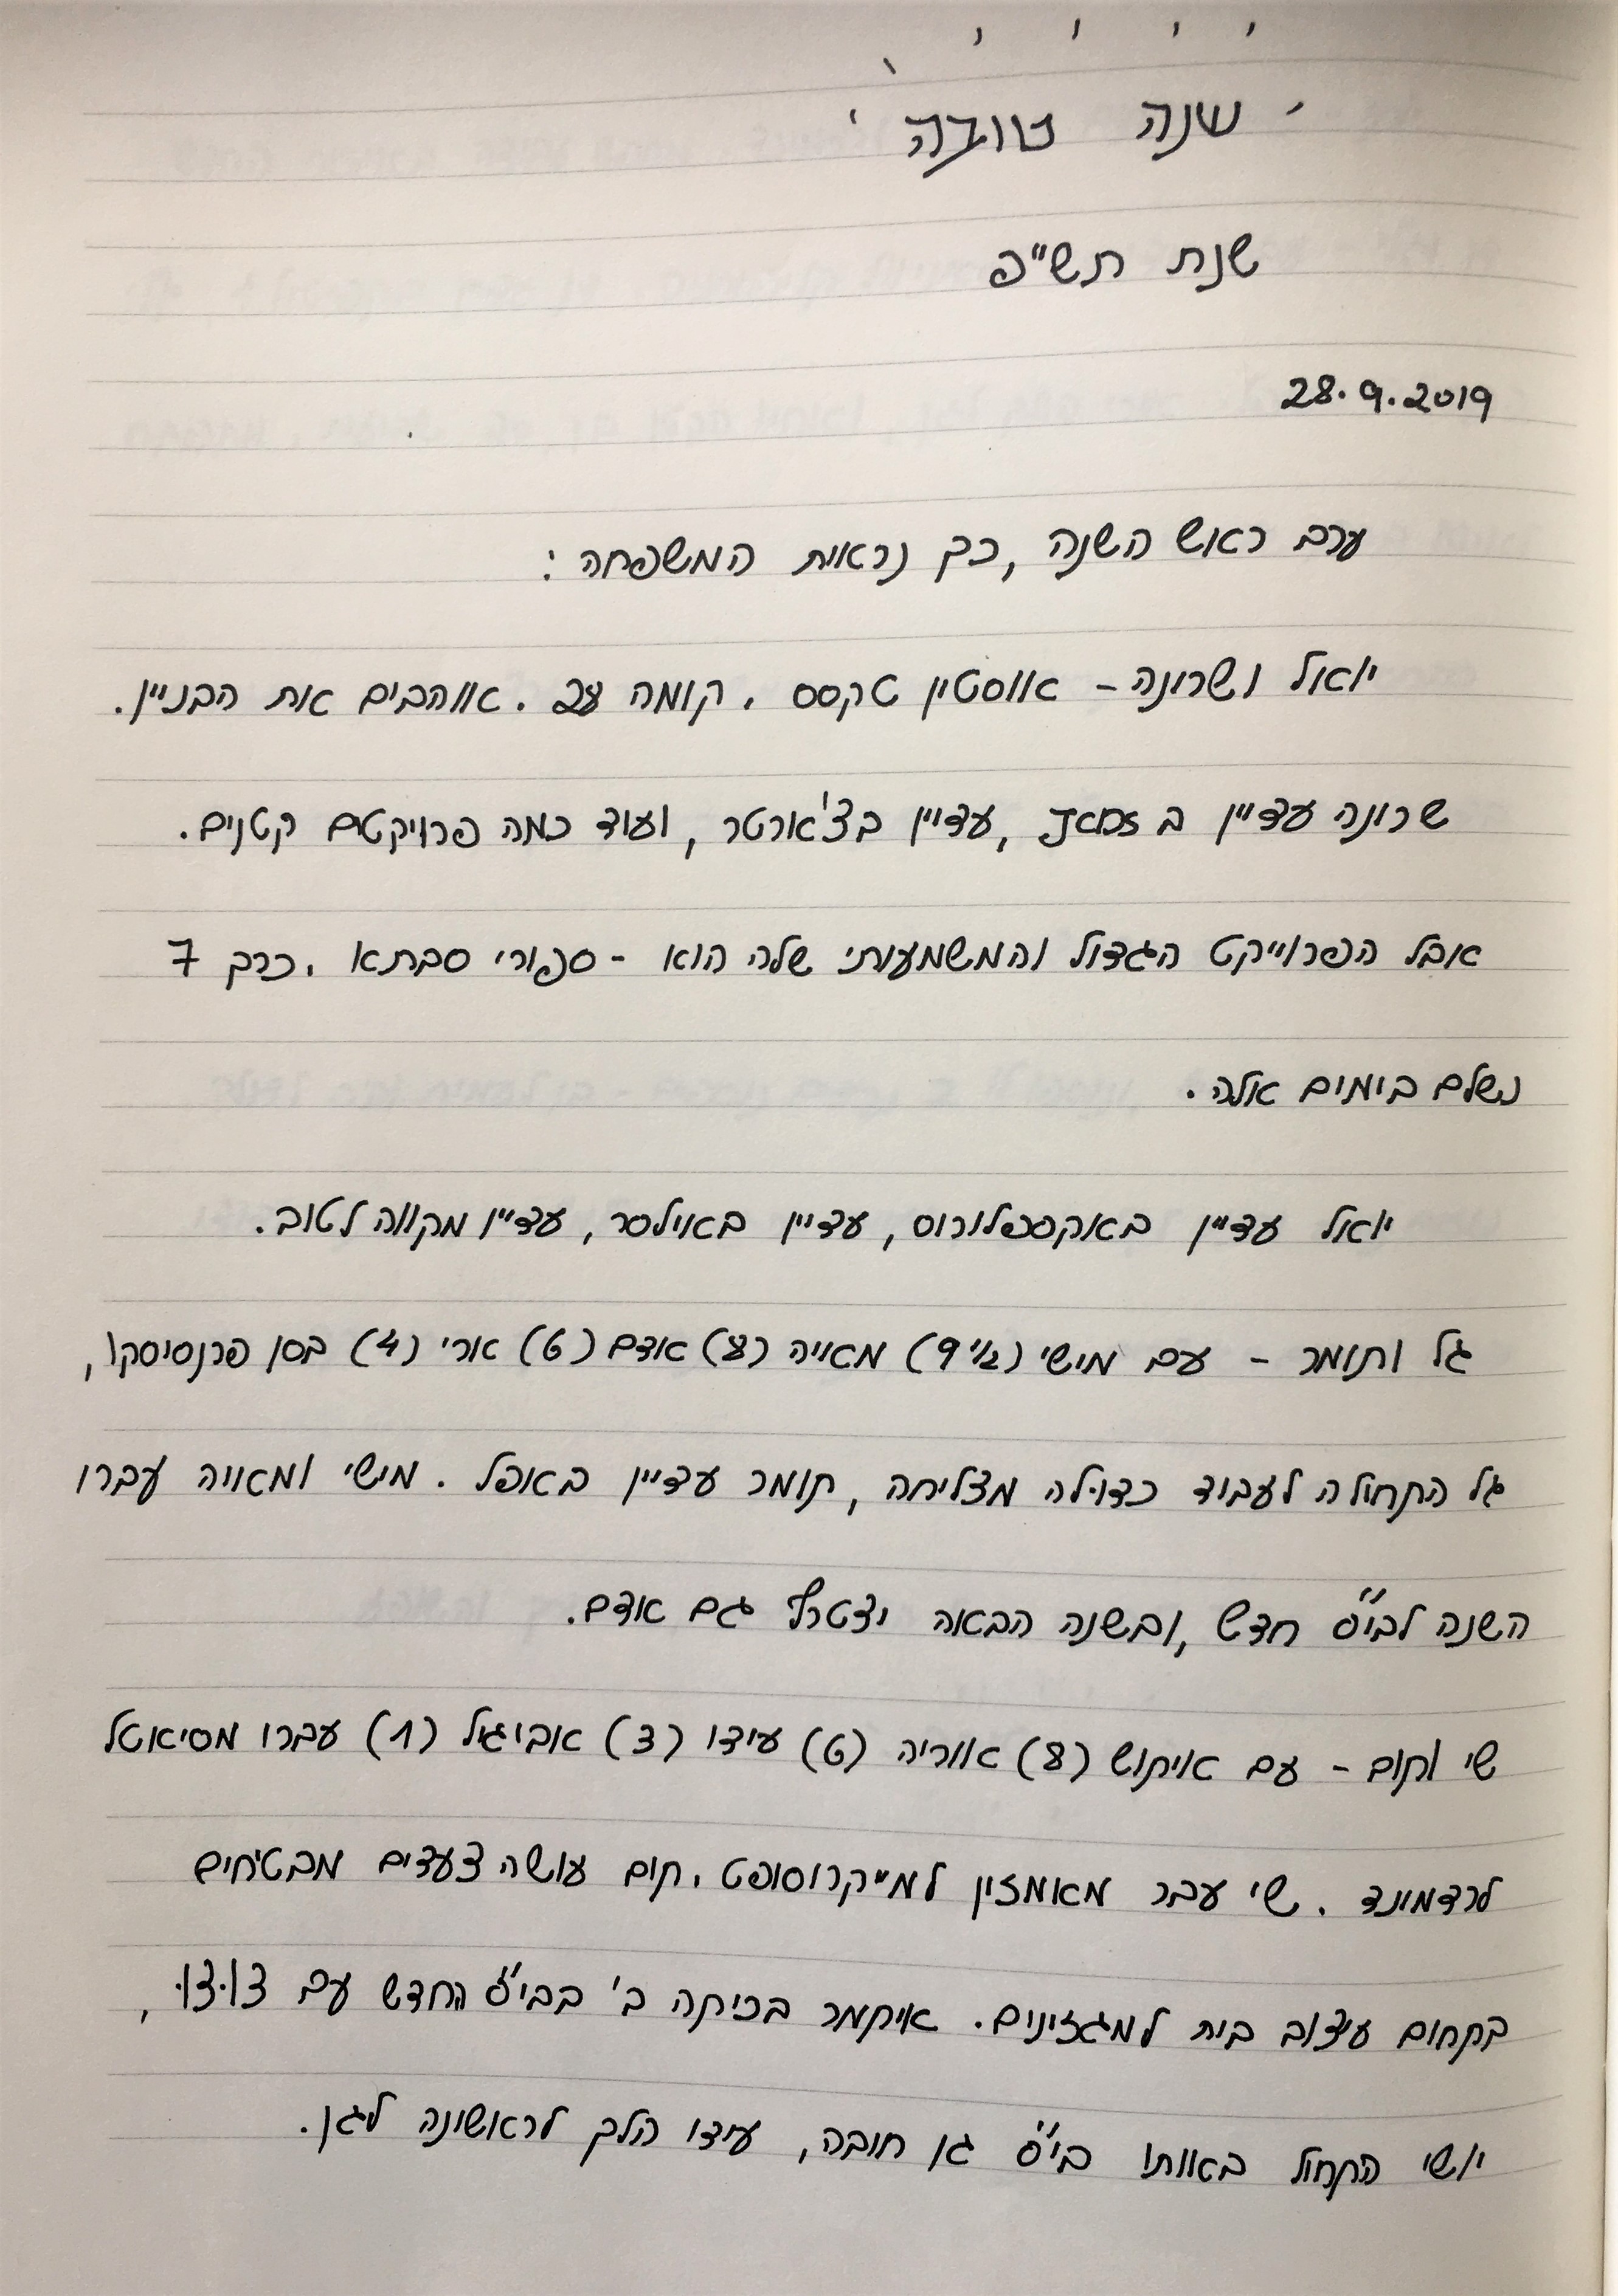 שנה טובה
שנת תש"פ
28.9.2019
ערב ראש השנה, כך נראית המשפחה:
יואל ושרונה - אווסטין טקסס, קומה 28. אווהבים את הבניין.
שרונה עדיין ב JADS, עדיין בצ'ארטר, ועוד כמה פרויקטים קטנים.
אבל הפרוייקט הגדול והמשמעותי שלה הוא - ספורי סבתא. כרך 7
נשלם בימים אלה.
יואל עדיין באקספלורוס, עדיין באוילסר, עדיין מקווה לטוב.
גל ותומר - עם מישי (9 וחצי) מאייה (8) אדם (6) ארי (4) בסן פרנסיסקו,
גל התחילה לעבוד כדולה מצליחה, תומר עדיין באפל. מישי ומאויה עברו
השנה לבי"ס חדש, ובשנה הבאה יצטרף גם אדם.
שי ותום - עם איתוש (8) אווריה (6) עידו (3) אביגיל (1) עברו מסיאטל
לרדמונד. שי עבר מאמזון למייקרוסופט. תום עושה צעדים מבטיחים
בתחום עיצוב בית למגזינים. איתמר בכיתה ב' בבי"ס החדש עם
יושי התחיל באותו בי"ס גן חובה, עידו הלך לראשונה לגן.